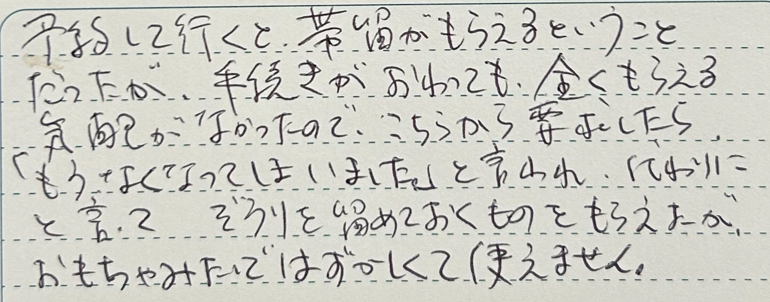 予約して行くと、帯留がもらえるということ
だったが、手続きがおわっても、全くもらえる
気配がなかったので、こちらから要求したら、
「もうなくなってしまいました」と言われ、代わりに
と言って ぞうりを留めておくものをもらえたが、
おもちゃみたいではずかしくて使えません。